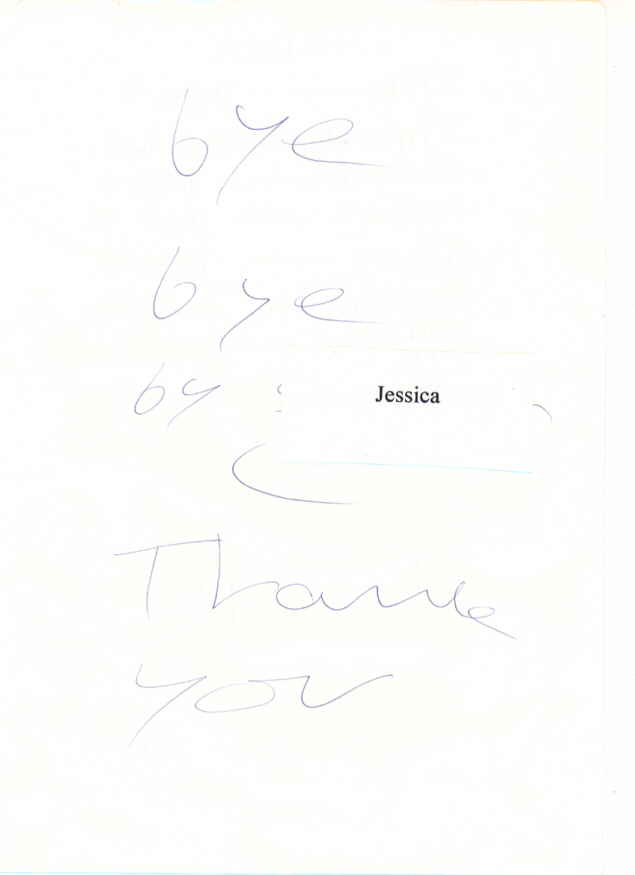 bye
bye
by : Jessica
Thank
you